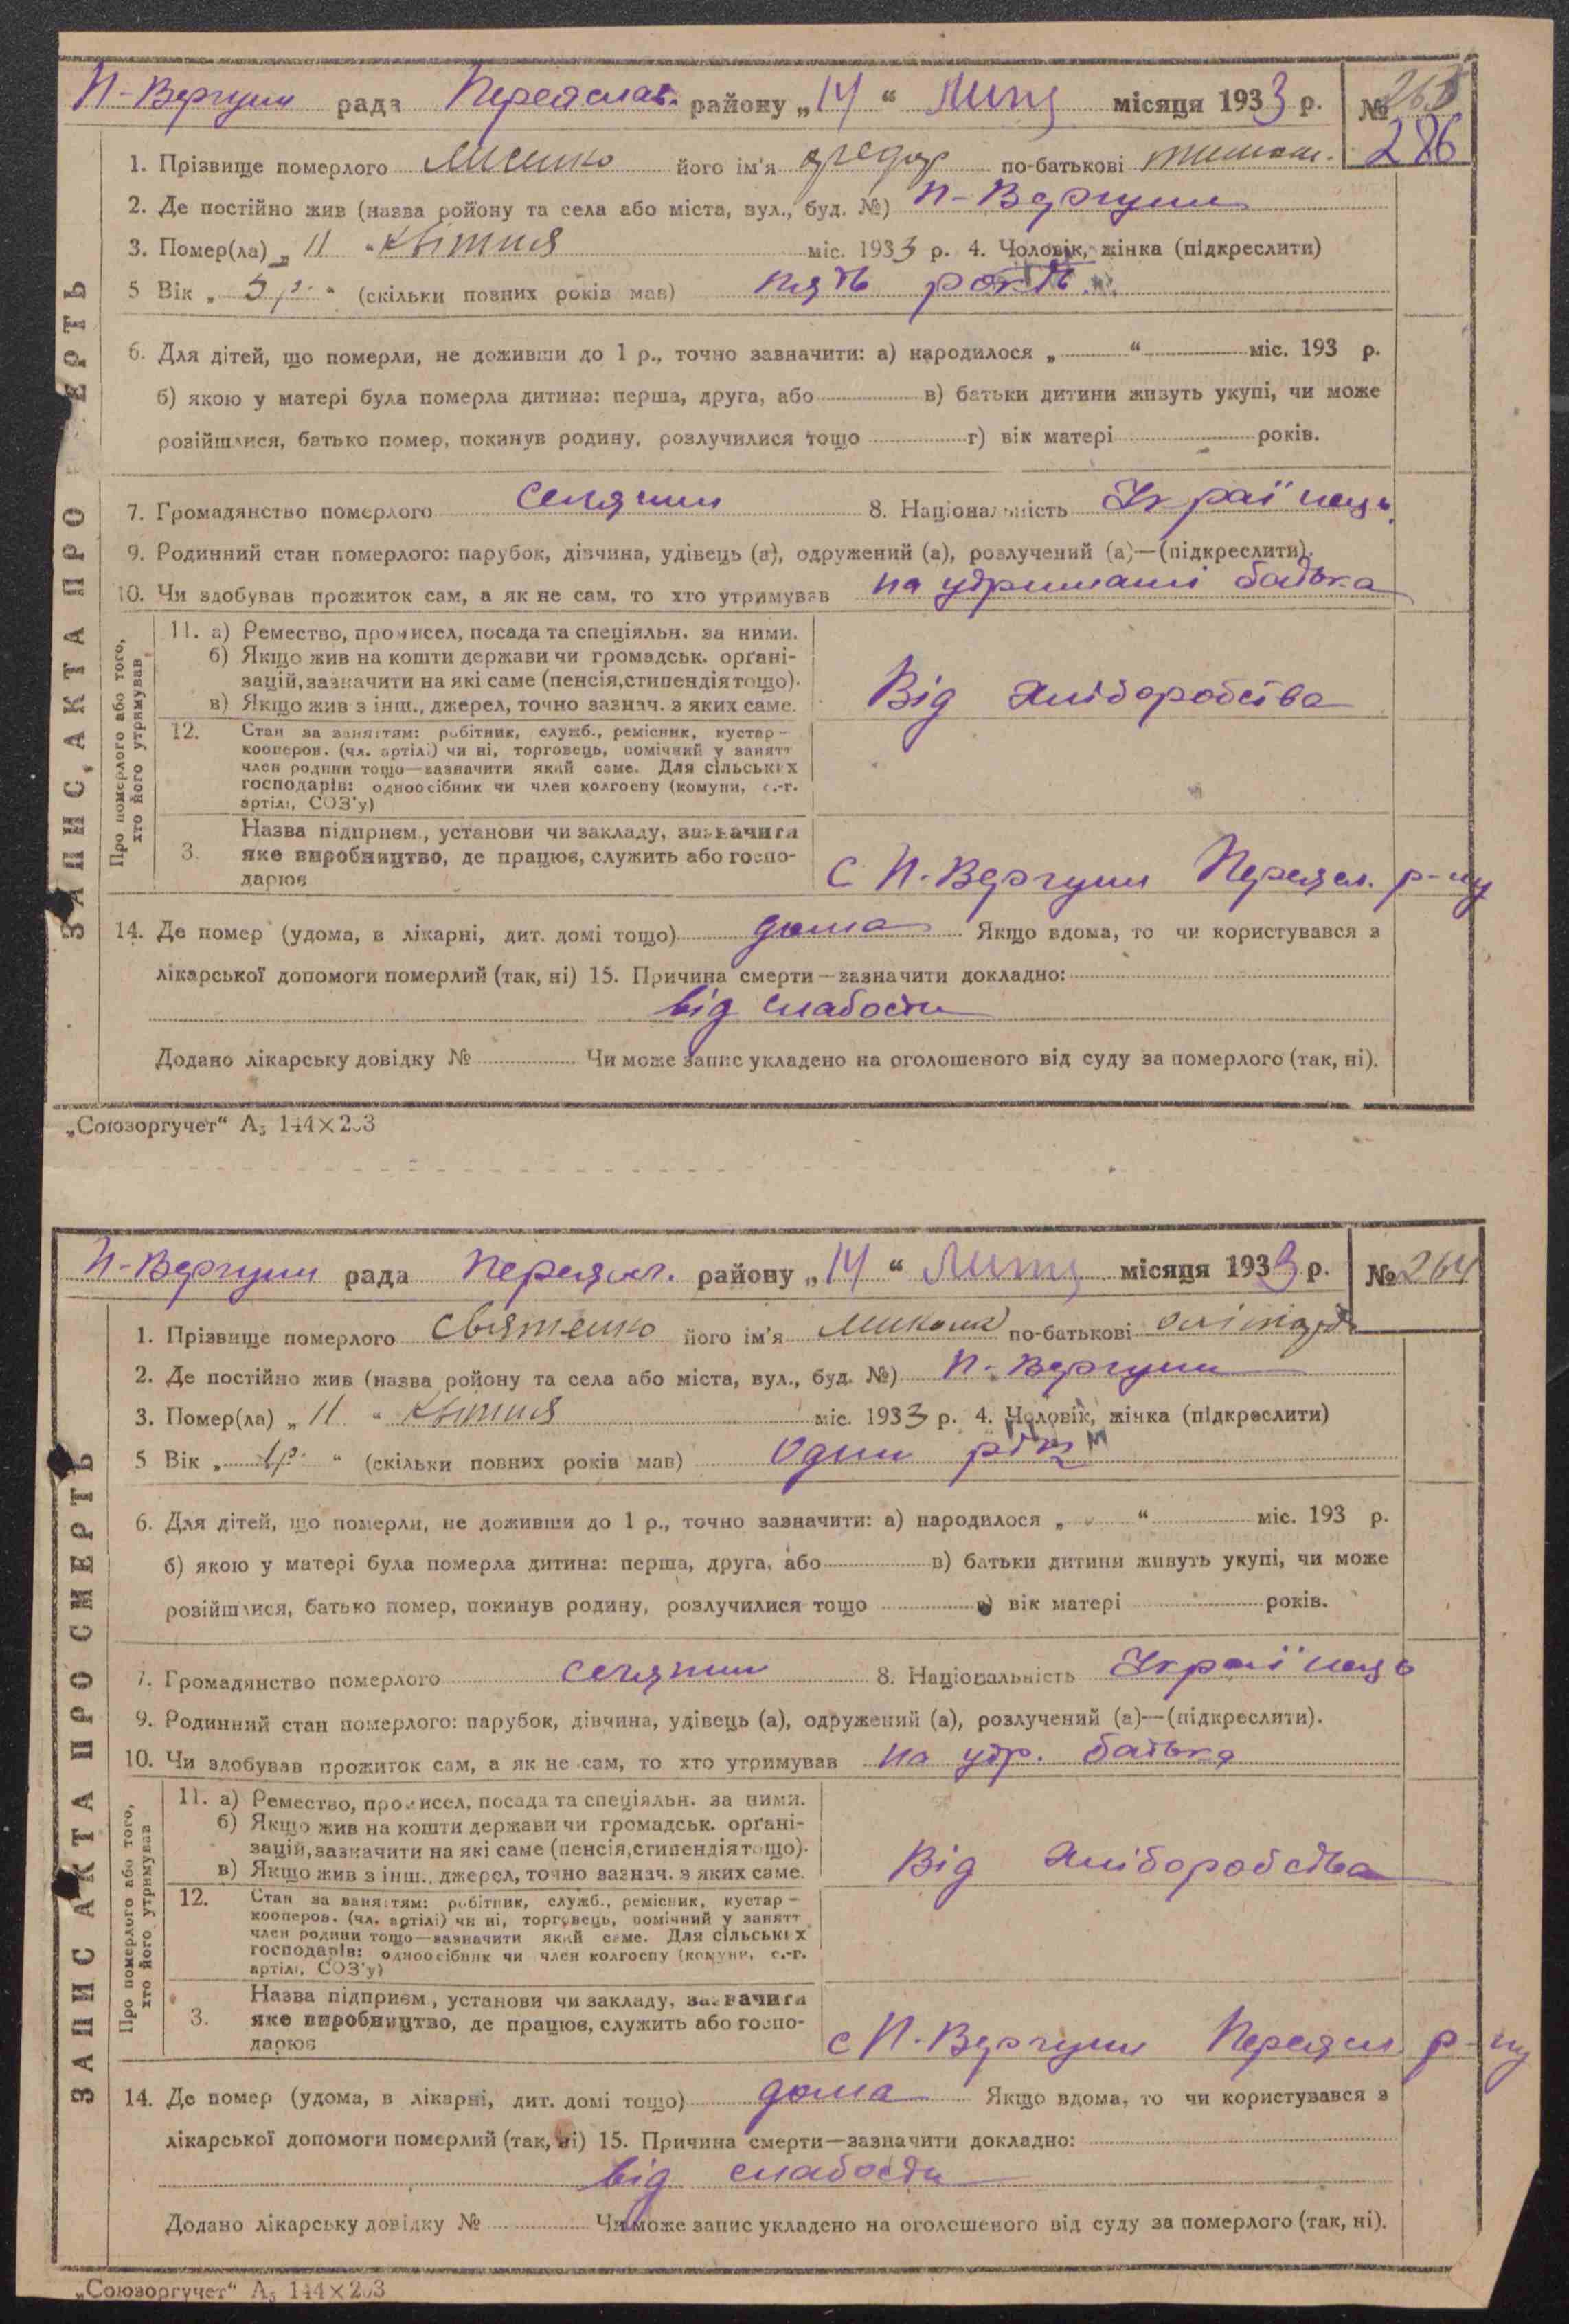 П-Вергуни рада Переяслав. району „14“ Липц місяця 1933 р. №263
286
1. Прізвище померлого його ім'я Федор по-батькові Тимош.
2. Де постійно жив (назва ройону та села або міста, вул., буд. №) П-Вергуни
3. Помер(ла) „11“ Квітня міс. 1933 р. 4. Чоловік, жінка (підкреслити)
5 Вік „5 р.“ (скільки повних років мав) пять років.
6. Для дітей, що померли, не доживши до 1 р., точно зазначити: а) народилося „ “ міс. 193 р.
б) якою у матері була померла дитина: перша, друга, або в) батьки дитини живуть укупі, чи може
розійшлися, батько помер, покинув родину, розлучилися тощо г) вік матері років.
7. Громадянство померлого селянин 8. Національність Українець.
9. Родинний стан померлого: парубок, дівчина, удівець (а), одружений (а), розлучений (а)—(підкреслити).
10. Чи здобував прожиток сам, а як не сам, то хто утримував на утриманні батька
ЗАПИС АКТА ПРО ЕРТЬ
Про померлого або того,
хто його утримував
11. а) Ремество, промисел, посада та спеціяльн. за ними.
б) Якщо жив на кошти держави чи громадськ. орґані-
зацій, зазначити на які саме (пенсія, стипендія тощо).
в) Якщо жив з інш., джерел, точно зазнач. з яких саме.
Від хліборобства
12. Стан за заняттям: робітник, служб., ремісник, кустар-
кооперов. (чл. артілі) чи ні, торговець, помічний у занятт
член родини тощо—зазначити який саме. Для сільських
господарів: одноосібник чи член колгоспу (комуни, с.-г.
артілі, СОЗ'у)
3. Назва підприєм., установи чи закладу, зазначити
яке виробництво, де працює, служить або госпо-
дарює
С П-Вергуни Переясл. р-ну
14. Де помер (удома, в лікарні, дит. домі тощо) дома Якщо вдома, то чи користувався з
лікарської допомоги померлий (так, ні) 15. Причина смерти—зазначити докладно:
від слабости
Додано лікарську довідку № Чи може запис укладено на оголошеного від суду за померлого (так, ні).
„Союзоргучет“ А5 144×203
П-Вергуни рада Переясл. району „14“ Липц місяця 1933 р. №264
1. Прізвище померлого Святенко його ім'я Микола по-батькові
2. Де постійно жив (назва ройону та села або міста, вул., буд. №) П-Вергуни
3. Помер(ла) „11“ Квітня міс. 1933 р. 4. Чоловік, жінка (підкреслити)
5 Вік „1р.“ (скільки повних років мав) Один рік м
6. Для дітей, що померли, не доживши до 1 р., точно зазначити: а) народилося „ “ міс. 193 р.
б) якою у матері була померла дитина: перша, друга, або в) батьки дитини живуть укупі, чи може
розійшлися, батько помер, покинув родину, розлучилися тощо г) вік матері років.
7. Громадянство померлого селянин 8. Національність Українець
9. Родинний стан померлого: парубок, дівчина, удівець (а), одружений (а), розлучений (а)—(підкреслити).
10. Чи здобував прожиток сам, а як не сам, то хто утримував на утр. батька
ЗАПИС АКТА ПРО СМЕРТЬ
Про померлого або того,
хто його утримував
11. а) Ремество, промисел, посада та спеціяльн. за ними.
б) Якщо жив на кошти держави чи громадськ. орґані-
зацій, зазначити на які саме (пенсія, стипендія тощо).
в) Якщо жив з інш., джерел, точно зазнач. з яких саме.
Від хліборобства
12. Стан за заняттям: робітник, служб., ремісник, кустар-
кооперов. (чл. артілі) чи ні, торговець, помічний у занятт
член родини тощо—зазначити який саме. Для сільських
господарів: одноосібник чи член колгоспу (комуни, с.-г.
артілі, СОЗ'у)
3. Назва підприєм., установи чи закладу, зазначити
яке виробництво, де працює, служить або госпо-
дарює
с П-Вергуни Переясл р-ну
14. Де помер (удома, в лікарні, дит. домі тощо) дома Якщо вдома, то чи користувався з
лікарської допомоги померлий (так, ні) 15. Причина смерти—зазначити докладно:
від слабости
Додано лікарську довідку № Чи може запис укладено на оголошеного від суду за померлого (так, ні).
„Союзоргучет“ А5 144×203